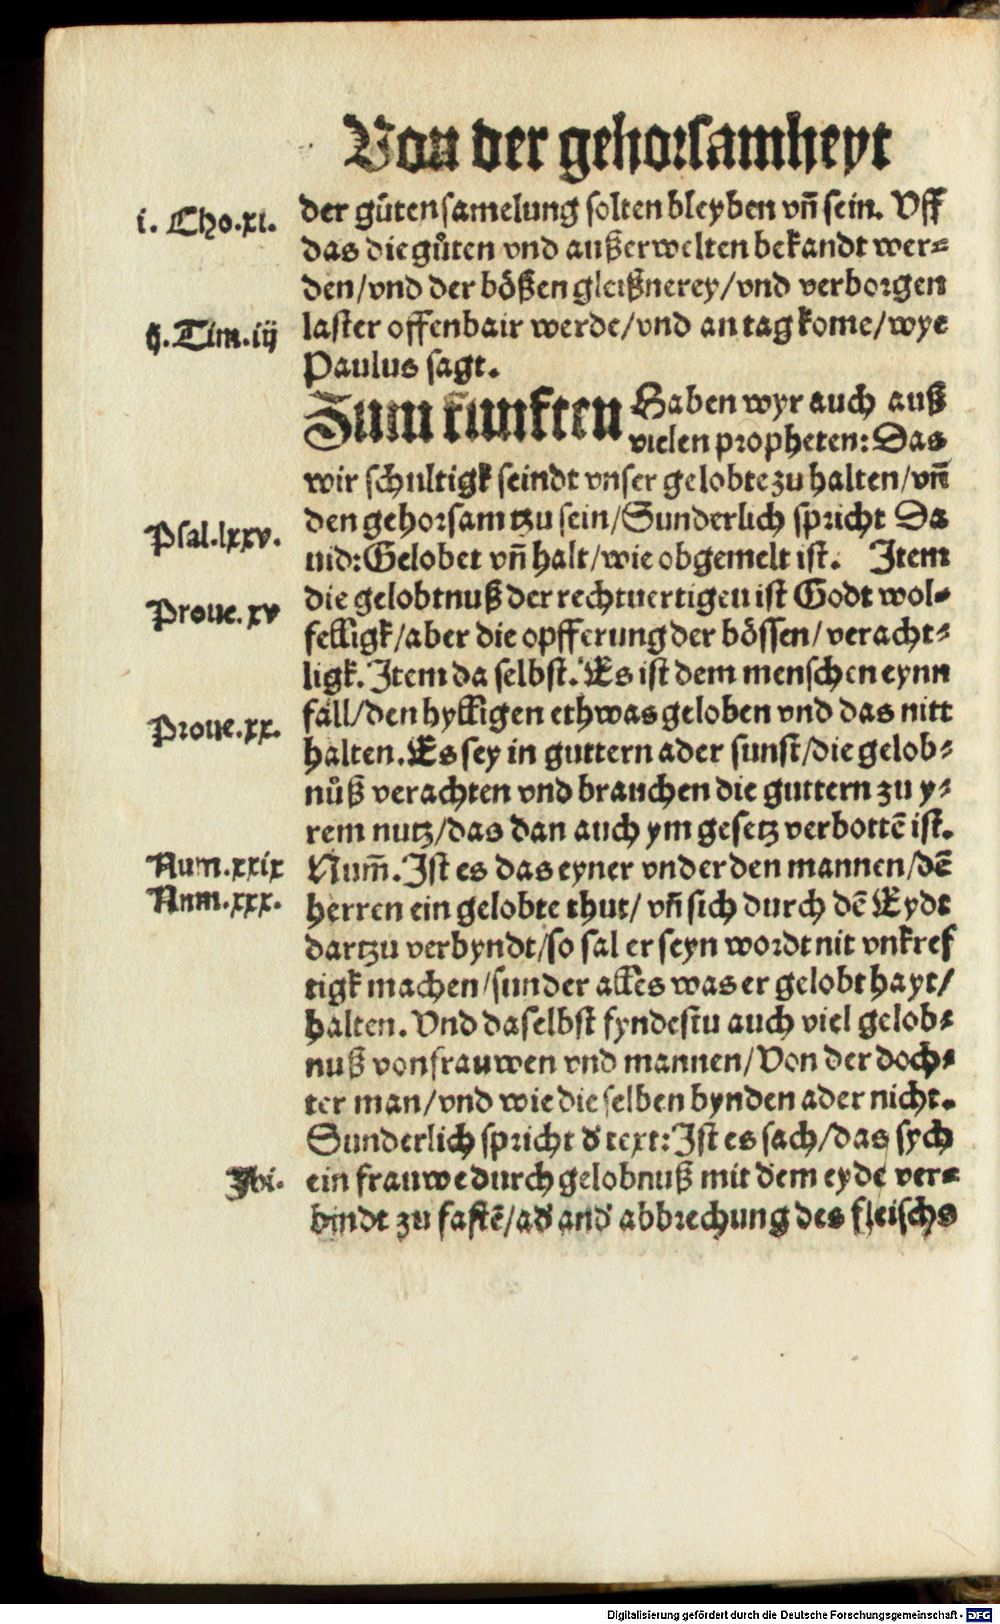 Von der gehorsamheyt
i. Cho.xi.
der gůten samelung solten bleyben vñ sein. Uff
das die gůten vnd außerwelten bekandt wer⸗
den/vnd der bößen gleißnerey/vnd verborgen
ij.Tim.iij
laster offenbair werde/vnd an tag kome/wye
Paulus sagt.
Zum funften Haben wyr auch auß
vielen propheten: Das
wir schultigk seindt vnser gelobte zu halten/vñ
Psal.lxxv.
den gehorsam tzu sein/Sunderlich spricht Da
uid: Gelobet vñ halt/wie obgemelt ist. Item
Proue.xv
die gelobtnuß der rechtuertigen ist Godt wol⸗
felligk/aber die opfferung der bössen/veracht⸗
ligk. Item da selbst. Es ist dem menschen eynn
Proue.xx.
fäll/den hylligen ethwas geloben vnd das nitt
halten. Es sey in guttern ader sunst/die gelob⸗
nůß verachten vnd brauchen die guttern zu y⸗
rem nutz/das dan auch ym gesetz verbottē ist.
Num.xxix
Num̄. Ist es das eyner vnder den mannen/dē
Num.xxx.
herren ein gelobte thut/ vñ sich durch dē Eydt
dartzu verbyndt/so sal er seyn wordt nit vnkref
tigk machen/sunder alles was er gelobt hayt/
halten. Vnd daselbst fyndestu auch viel gelob⸗
nuß von frauwen vnd mannen/Von der doch⸗
ter man/vnd wie die selben bynden ader nicht.
Sunderlich spricht d' text: Ist es sach/das sych
Ibi.
ein frauwe durch gelobnuß mit dem eyde ver⸗
bindt zu fastē/ad' and' abbrechung des fleischs
Digitalisierung gefördert durch die Deutsche Forschungsgemeinschaft - DFG